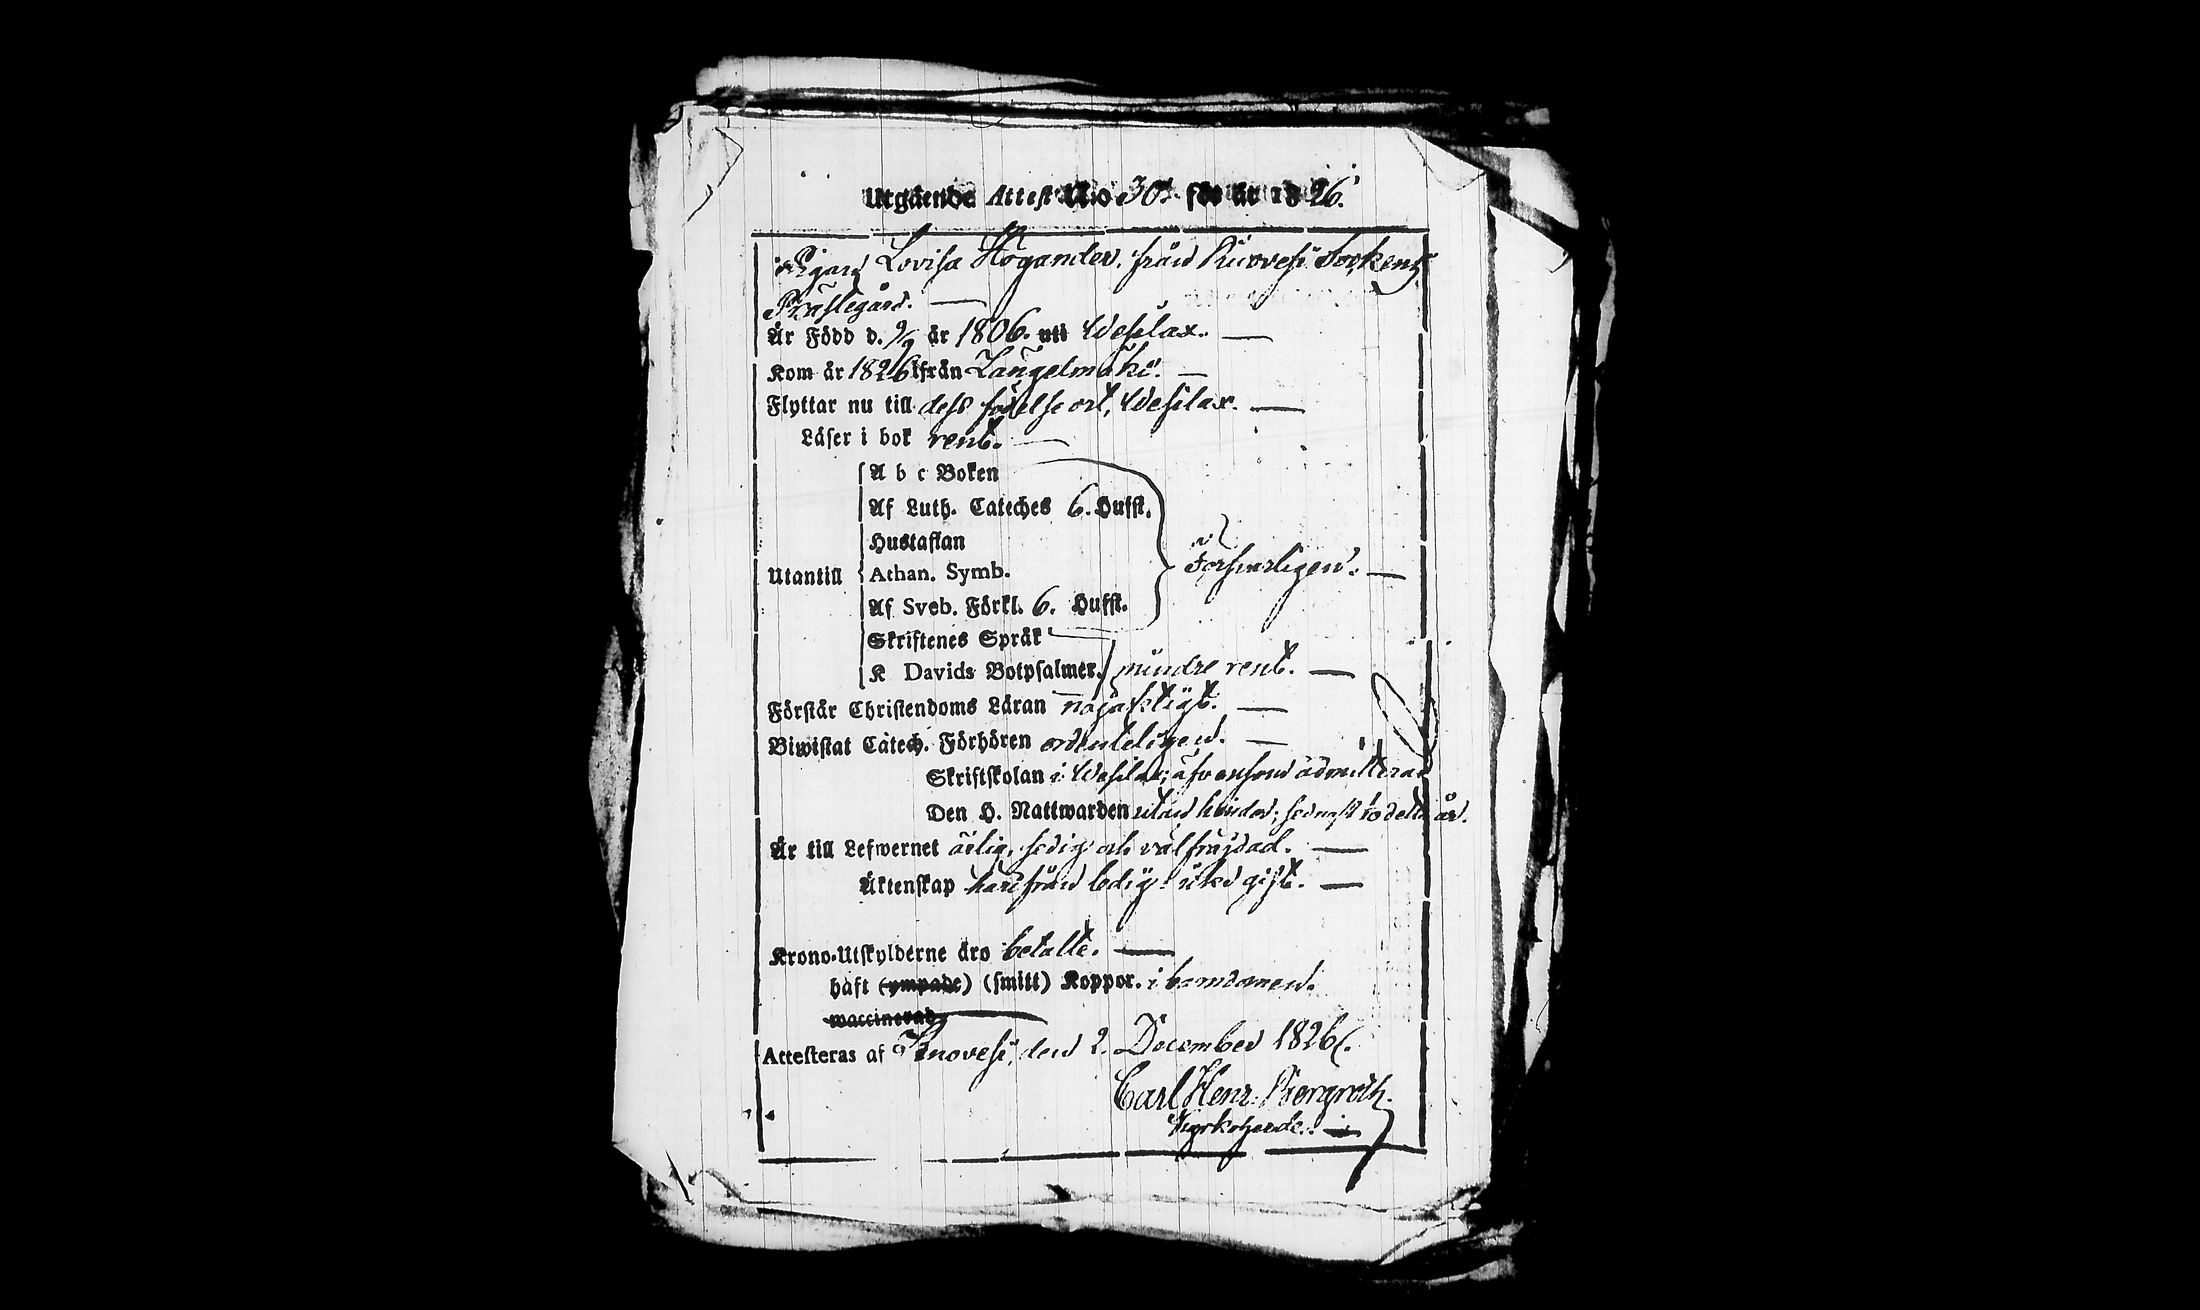 Utgående Attest N:o 30. för år 1826.
Pigan Lovisa Högander, från Ruovesi Sockens
Prästegård.
Är Född d. 9/9 år 1806. uti Wesilax.
Kom år 1826 ifrån Längelmäki.
Flyttar nu till dess födelse ort, Wesilax.
Läser i bok rent.
A b c Boken
Af Luth. Cateches 6. Hufst.
Hustaflan
Utantill Athan. Symb. Försvarligen.
Af Sveb. Förkl. 6. Hufst.
Skriftenes Språk
K Davids Botpsalmer. mindre rent.
Förstår Christendoms Läran nöjaktigt.
Biwistat Catech. Förhören ordenteligen.
Skriftskolan i Wesilax; äfvensom admitterad
Den H. Nattwarden utan hinder; sednast 1/10 detta år.
Är till Lefwernet ärlig, sedig och välfräjdad.
Äktenskap härifrån ledig utod gift.
Krono-Utskylderne äro betalte.
haft (ympade) (smitt) Koppor. i barndomen.
waccinerad
Attesteras af Ruovesi, den 2. December 1826.
Carl Henr. Bergroth.
Kyrkoherde.